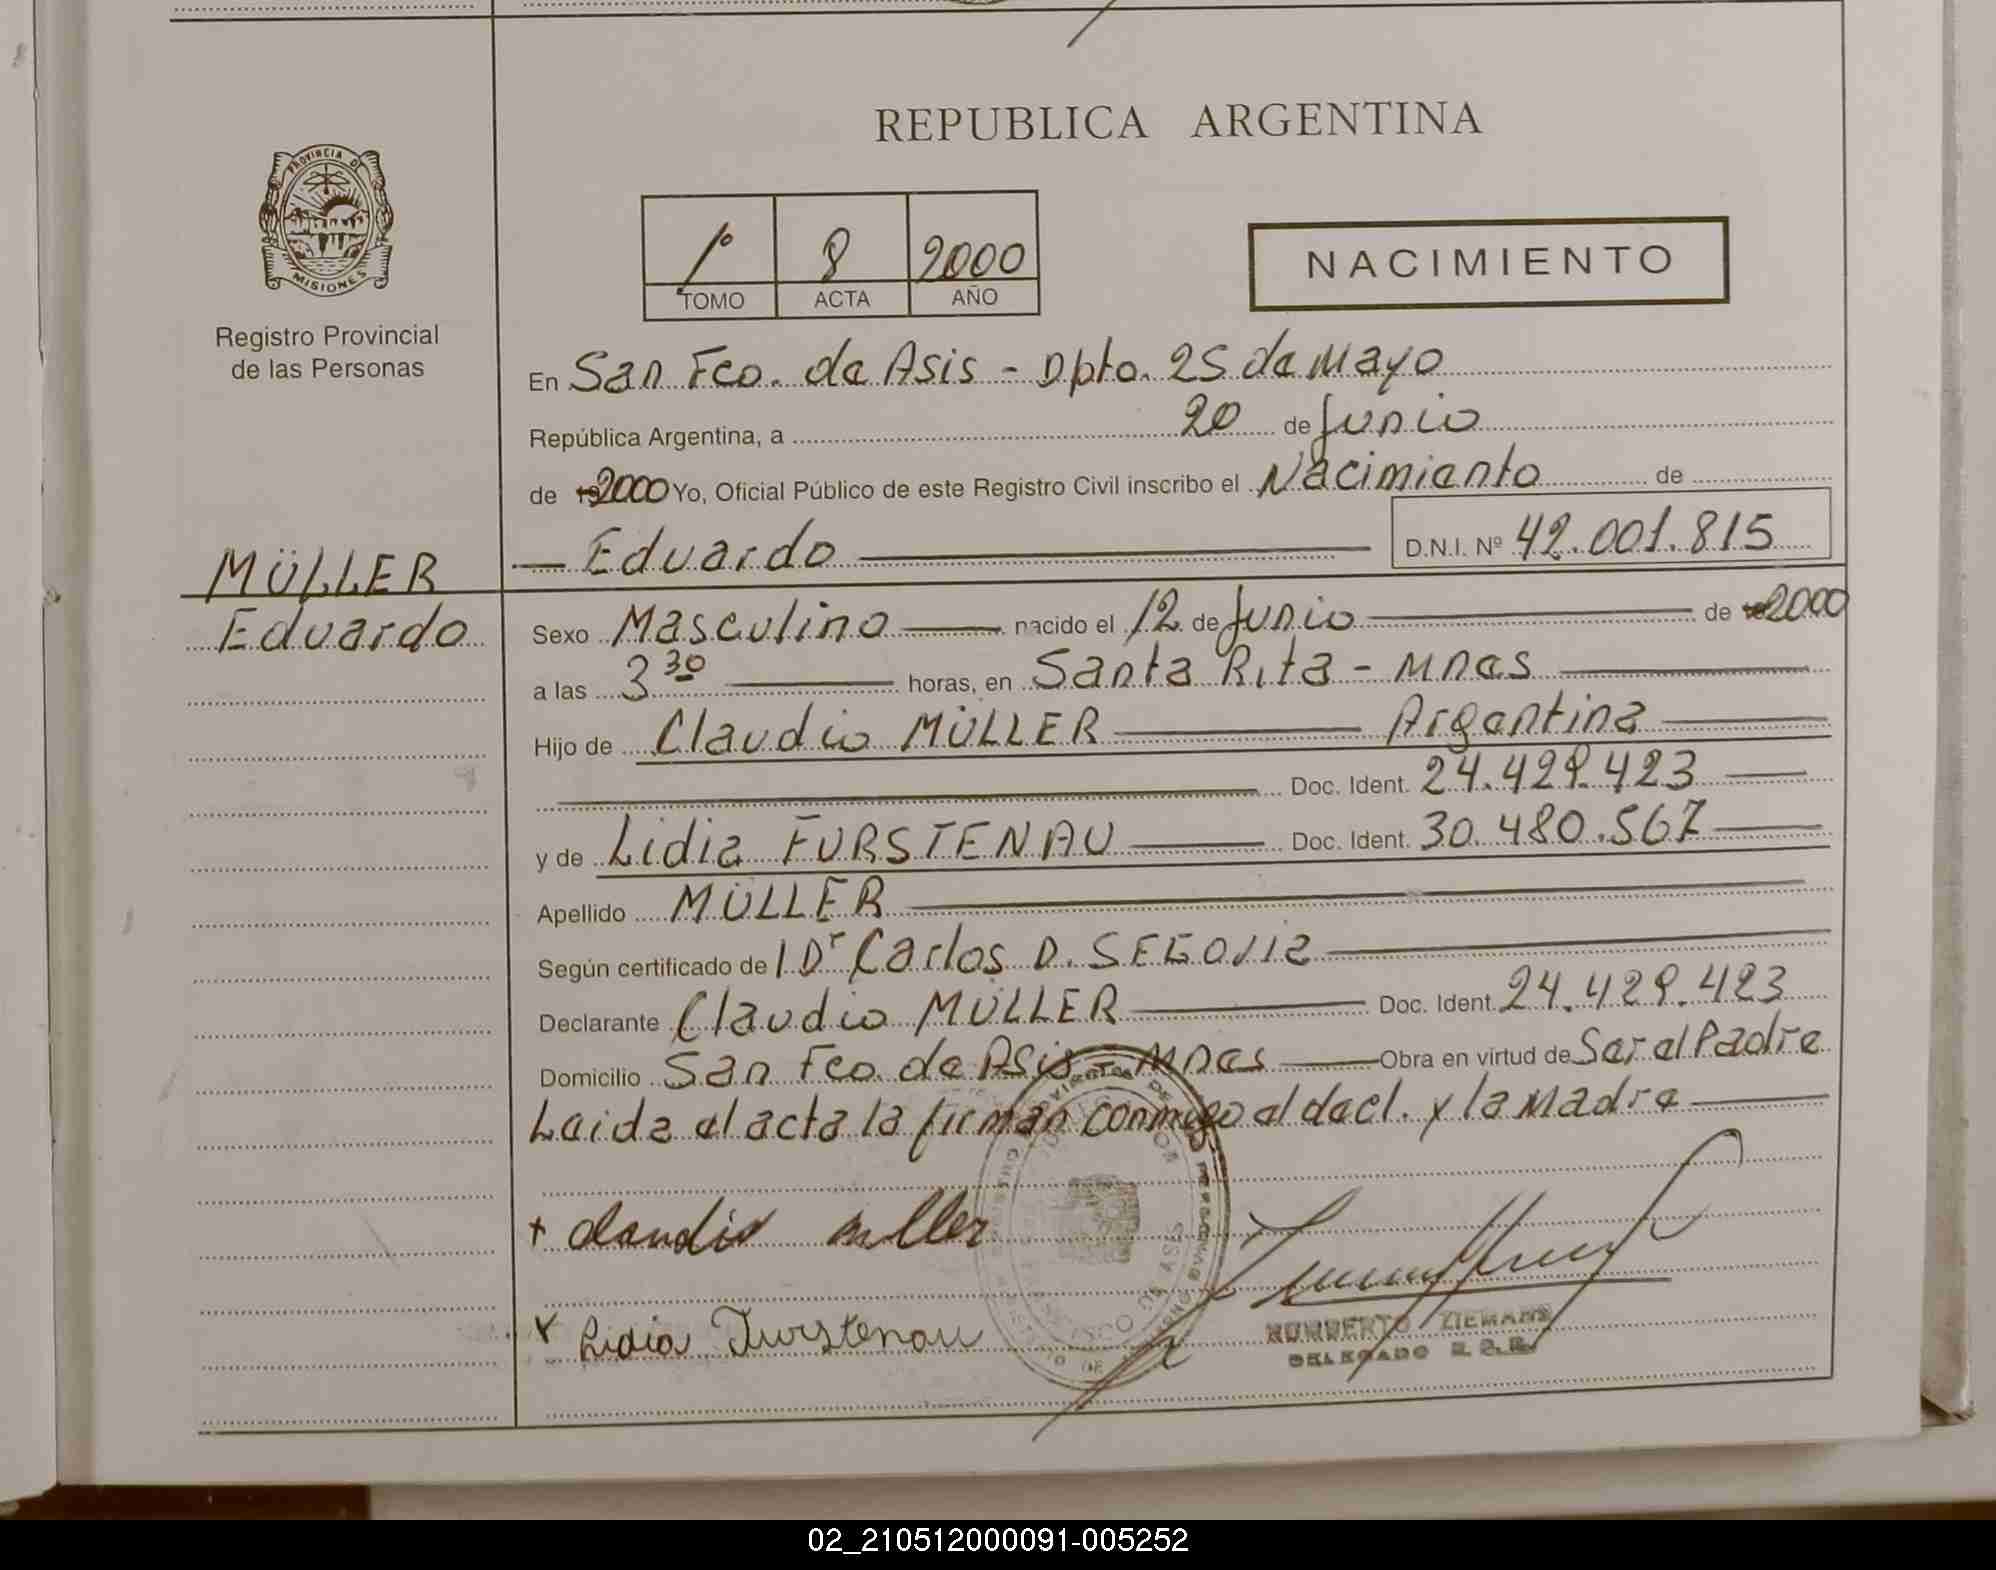 REPUBLICA ARGENTINA
PROVINCIA DE
MISIONES
Registro Provincial
de las Personas
1º 8 2000
TOMO ACTA AÑO
NACIMIENTO
En San Fco. de Asis - Dpto. 25 de Mayo
República Argentina, a 20 de Junio
de 2000 Yo, Oficial Público de este Registro Civil inscribo el Nacimiento de
Eduardo D.N.I. Nº 42.001.815
MÜLLER
Eduardo
Sexo Masculino nacido el 12 de Junio de 2000
a las 3 30 horas, en Santa Rita - Mnes
Hijo de Claudio MÜLLER Argentina
Doc. Ident. 24.429.423
y de Lidia FURSTENAU Doc. Ident. 30.480.567
Apellido MÜLLER
Según certificado de l Dr Carlos D. SEGOVIA
Declarante Claudio MÜLLER Doc. Ident. 24.429.423
Domicilio San Fco. de Asis - Mnes Obra en virtud de Ser el Padre
Leida el acta la firman conmigo el decl. y la Madre
+ claudio muller
x Lidia Furstenau
HUMBERTO ZIEMANN
DELEGADO
02_210512000091-005252